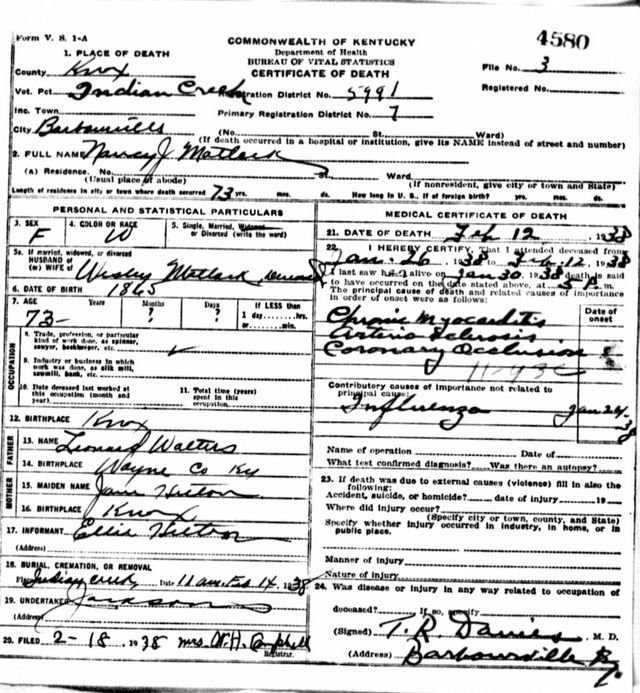 Form V. S. 1-A
COMMONWEALTH OF KENTUCKY
Department of Health
BUREAU OF VITAL STATISTICS
CERTIFICATE OF DEATH
4580
File No. 3
Registered No.
1. PLACE OF DEATH
County Knox
Vot. Pct. Indian Creek
Registration District No. 5991
Inc. Town
Primary Registration District No. 7
City Barbourville (No. St. Ward)
(If death occurred in a hospital or institution, give its NAME instead of street and number)
2. FULL NAME Nancy J Matlock
(a) Residence. No. Ward
(Usual place of abode) (If nonresident, give city or town and State)
Length of residence in city or town where death occurred 73 yrs. mos. ds. How long in U. S., if of foreign birth? yrs. mos. ds.
PERSONAL AND STATISTICAL PARTICULARS
3. SEX F
4. COLOR OR RACE W
5. Single, Married, Widowed or Divorced (write the word)
5a. If married, widowed, or divorced
HUSBAND of
(or) WIFE of Wesley Matlock Deceased
6. DATE OF BIRTH 1865
7. AGE Years Months Days If LESS than
73- ? ? 1 day hrs.
or min.
OCCUPATION
8. Trade, profession, or particular
kind of work done, as spinner,
sawyer, bookkeeper, etc.
9. Industry or business in which
work was done, as silk mill,
sawmill, bank, etc.
10. Date deceased last worked at
this occupation (month and
year)
11. Total time (years)
spent in this
occupation
12. BIRTHPLACE Knox
FATHER
13. NAME Leonard Walters
14. BIRTHPLACE Wayne Co Ky
MOTHER
15. MAIDEN NAME Jane
16. BIRTHPLACE Knox
17. INFORMANT Ellis
(Address)
18. BURIAL, CREMATION, OR REMOVAL
Place Indian Creek Date 11 am Feb 14, 1938
19. UNDERTAKER Jackson
(Address)
20. FILED 2-18, 1938 Mrs. W. H. Campbell
Registrar.
MEDICAL CERTIFICATE OF DEATH
21. DATE OF DEATH Feb 12, 1938
22. I HEREBY CERTIFY, That I attended deceased from
Jan. 26, 1938 to Feb. 12, 1938
I last saw her alive on Jan 30, 1938 death is said
to have occurred on the date stated above, at 5 P. m.
The principal cause of death and related causes of importance
in order of onset were as follows:
Date of
onset
Chronic Myocarditis
Arterio Sclerosis
Coronary Occlusion
Contributory causes of importance not related to
principal cause:
Influenza Jan 24. 38
Name of operation Date of
What test confirmed diagnosis? Was there an autopsy?
23. If death was due to external causes (violence) fill in also the
following:
Accident, suicide, or homicide? date of injury 19
Where did injury occur?
(Specify city or town, county, and State)
Specify whether injury occurred in industry, in home, or in
public place.
Manner of injury
Nature of injury
24. Was disease or injury in any way related to occupation of
deceased? If so, specify
(Signed) T. R. Davies, M. D.
(Address) Barbourville Ky